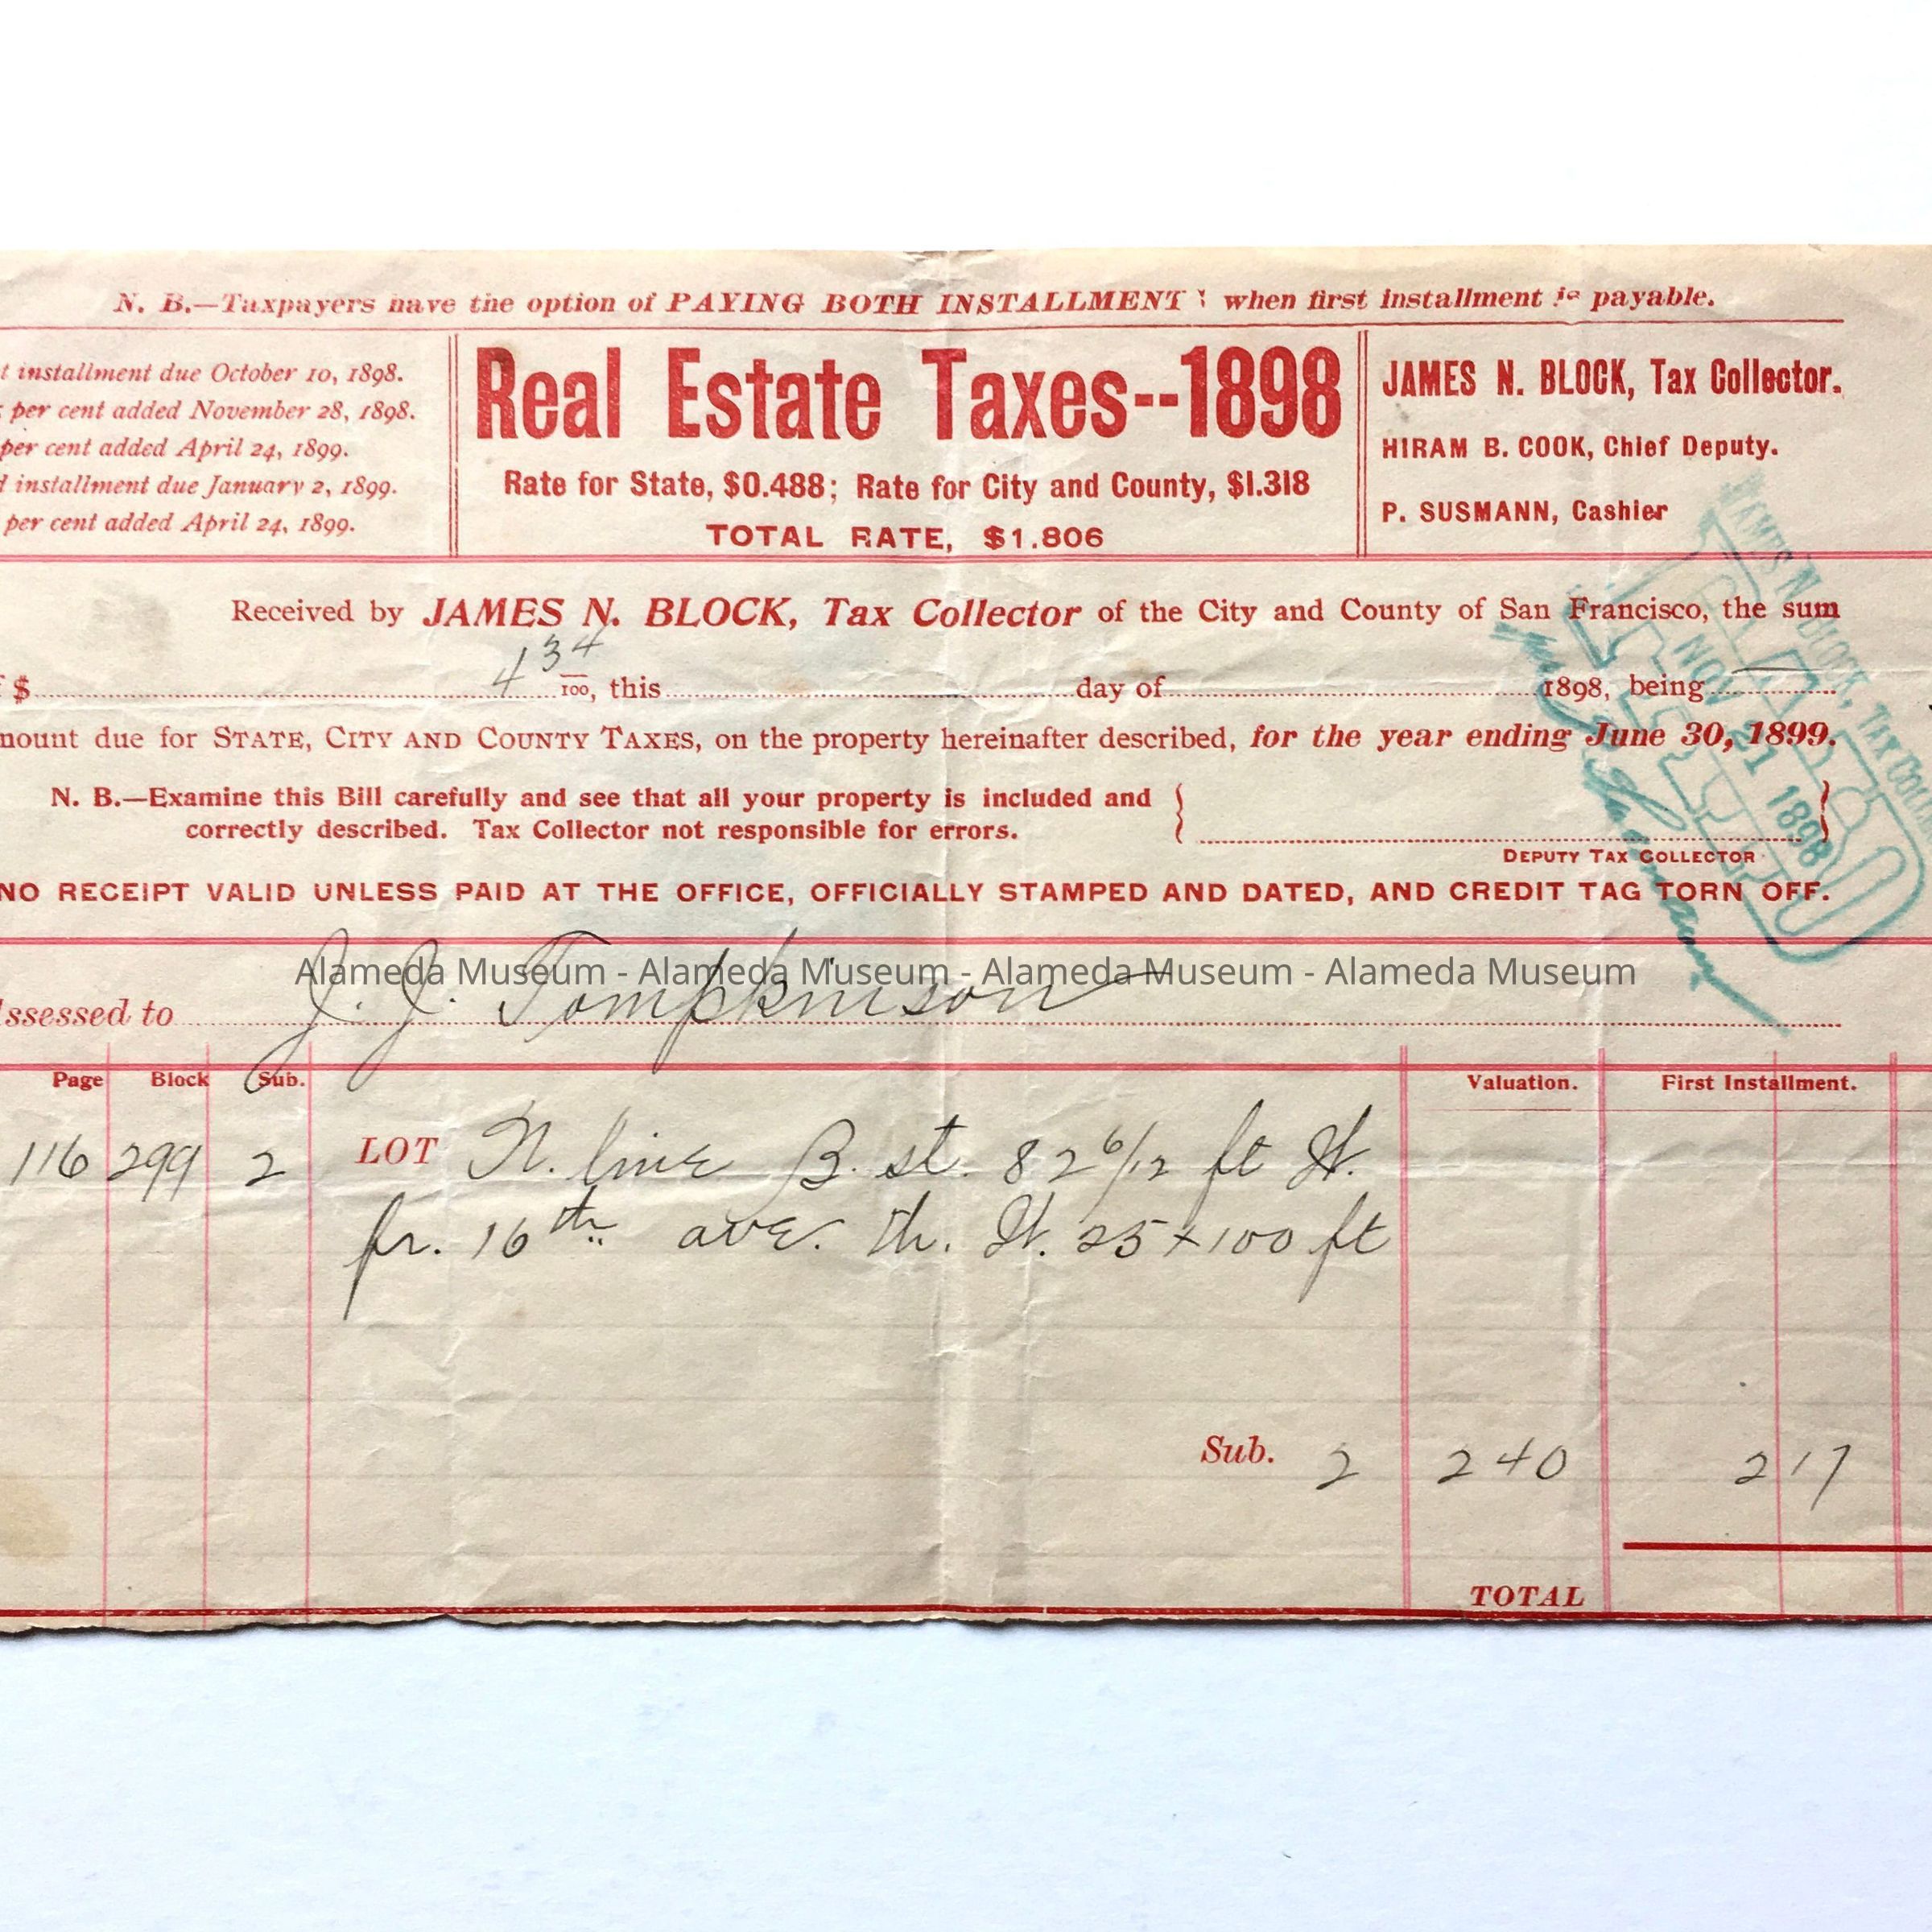 N. B.—Taxpayers have the option of PAYING BOTH INSTALLMENT when first installment is payable.
installment due October 10, 1898.
per cent added November 28, 1898.
per cent added April 24, 1899.
installment due January 2, 1899.
per cent added April 24, 1899.
Real Estate Taxes--1898
Rate for State, $0.488; Rate for City and County, $1.318
TOTAL RATE, $1.806
JAMES N. BLOCK, Tax Collector.
HIRAM B. COOK, Chief Deputy.
P. SUSMANN, Cashier
Received by JAMES N. BLOCK, Tax Collector of the City and County of San Francisco, the sum
$ 4 34/100, this day of 1898, being
mount due for STATE, CITY AND COUNTY TAXES, on the property hereinafter described, for the year ending June 30, 1899.
N. B.—Examine this Bill carefully and see that all your property is included and
correctly described. Tax Collector not responsible for errors.
DEPUTY TAX COLLECTOR
JAMES N. BLOCK, TAX COLL
PAID
NOV 21 1898
NO RECEIPT VALID UNLESS PAID AT THE OFFICE, OFFICIALLY STAMPED AND DATED, AND CREDIT TAG TORN OFF.
Alameda Museum - Alameda Museum - Alameda Museum - Alameda Museum
ssessed to J. J. Tompkinson
Page Block Sub. Valuation. First Installment.
116 299 2 LOT N. line B. st. 82 6/12 ft W.
fr. 16th ave. th. W. 25 x 100 ft
Sub. 2 240 2 17
TOTAL